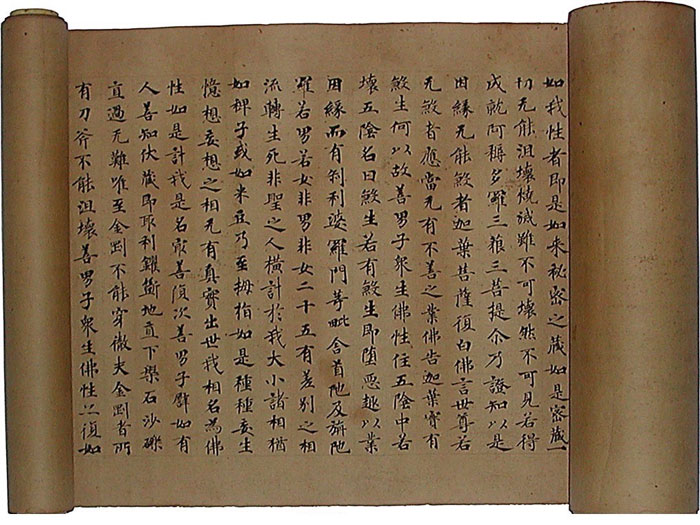 如我性者即是如来祕密之藏如是密藏一
切无能沮壞燒滅雖不可壞然不可見若得
成就阿耨多羅三藐三菩提尒乃證知以是
因緣无能煞者迦葉菩薩復白佛言世尊若
无煞者應當无有不善之業佛告迦葉實有
煞生何以故善男子衆生佛性住五陰中若
壞五陰名曰煞生若有煞生即墮惡趣以業
因緣而有刹利婆羅門等毗舍首陁及旃陁
羅若男若女非男非女二十五有差别之相
流轉生死非聖之人横計於我大小諸相猶
如稗子或如米豆乃至拇指如是種種妄生
憶想妄想之相无有真實出世我相名為佛
性如是計我是名冣善復次善男子譬如有
人善知伏藏即取利钁斸地直下槃石沙礫
直過无難唯至金剛不能穿徹夫金剛者所
有刀斧不能沮壞善男子衆生佛性亦復如